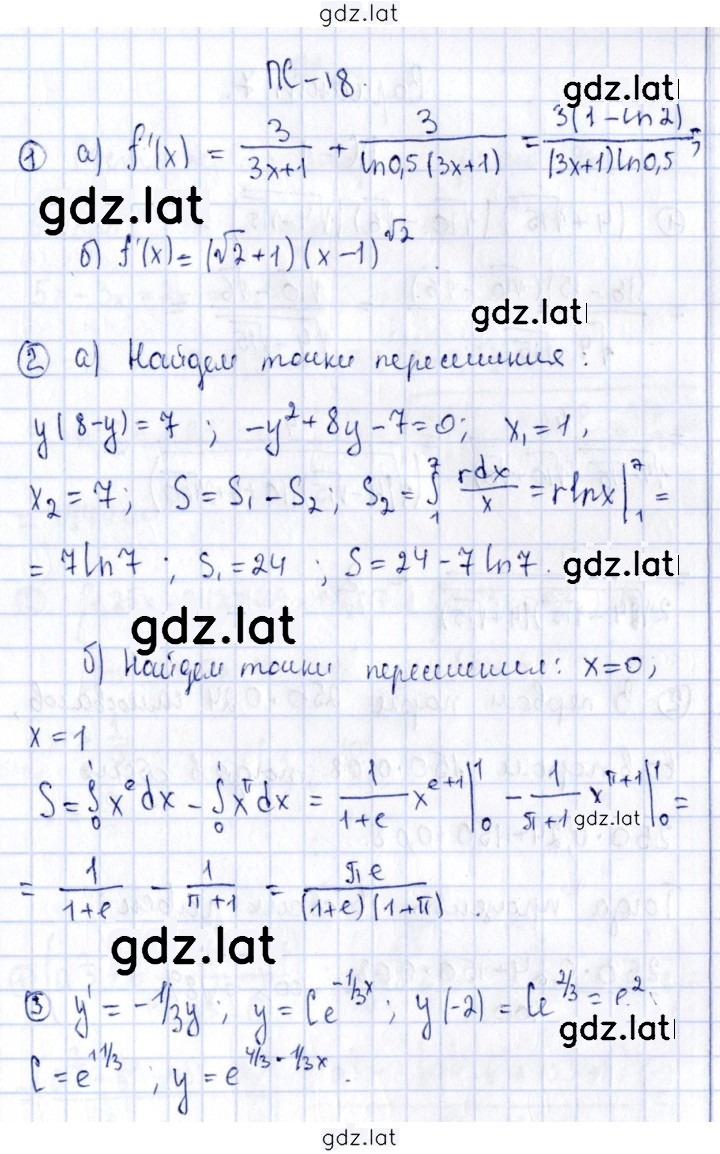 gdz.lat
ПС-18.
gdz.lat
① а) f'(x) = 3/(3x+1) + 3/(ln0,5(3x+1)) = 3(1-ln2)/((3x+1)ln0,5);
gdz.lat
б) f'(x) = (√2+1)(x-1)^√2.
gdz.lat
② а) Найдем точки пересечения:
y(8-y)=7 ; -y²+8y-7=0; x₁=1,
x₂=7; S=S₁-S₂; S₂=∫₁⁷ rdx/x = rlnx|₁⁷ =
= 7ln7 ; S₁=24 ; S=24-7ln7. gdz.lat
gdz.lat
б) Найдем точки пересечения: x=0;
x=1
S=∫₀¹x^e dx - ∫₀¹x^π dx = 1/(1+e) x^(e+1)|₀¹ - 1/(π+1) x^(π+1)|₀¹ =
gdz.lat
= 1/(1+e) - 1/(π+1) = πe/((1+e)(1+π)).
gdz.lat
③ y' = -1/3y ; y = Ce^(-1/3x) ; y(-2) = Ce^(2/3) = e²;
gdz.lat
C = e^(1 1/3) ; y = e^(4/3 - 1/3x).
gdz.lat